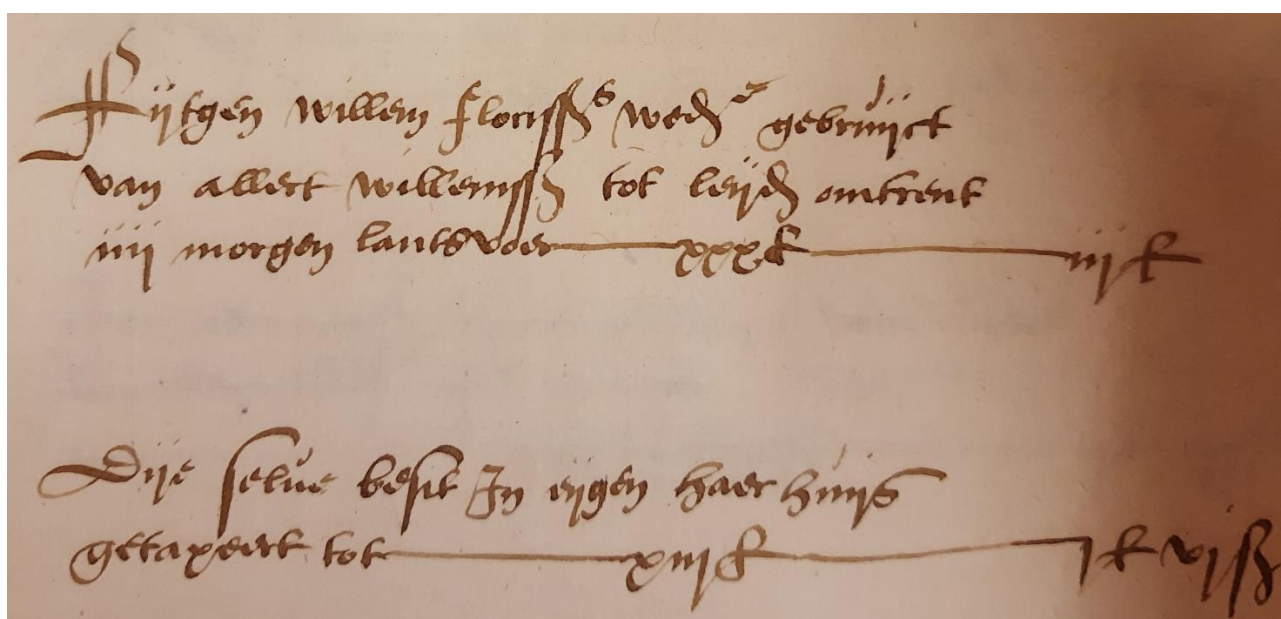 Fijtgen willem florissz weder gebruijct
van allert willemssz tot leijden omtrent
iiij morgen lants voer xxx £ iij £
Dije selue besit In eijgen haer huijs
getaxeert tot xiij £ j £ vj ß